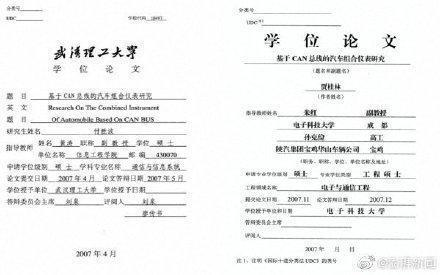 分类号
UDC
学校代码 10497
武汉理工大学
学 位 论 文
题 目 基于CAN总线的汽车组合仪表研究
英 文 Research On The Combined Instrument
题 目 Of Automobile Based On CAN BUS
研究生姓名 付胜波
指导教师 姓名 黄涛 职称 副教授 学位 硕士
单位名称 信息工程学院 邮编 430070
申请学位级别 硕士 学科专业名称 通信与信息系统
论文提交日期 2007年4月 论文答辩日期 2007年5月
学位授予单位 武汉理工大学 学位授予日期
答辩委员会主席 刘泉 评阅人 刘泉
廖传书
2007年4月
分类号
UDC
学 位 论 文
基于CAN总线的汽车组合仪表研究
(题名和副题名)
贾桂林
(作者姓名)
指导教师姓名 朱红 副教授
电子科技大学 成都
孙克俭 高工
陕汽集团宝鸡华山车辆公司 宝鸡
(职务、职称、学位、单位名称及地址)
申请专业学位级别 硕士 专业学位类别 工程硕士
工程领域名称 电子与通信工程
提交论文日期 2007.11 论文答辩日期 2007.12
学位授予单位和日期 电子科技大学
答辩委员会主席
评阅人
2007年 月 日
注1:注明《国际十进分类法UDC》的类号
@澎湃新闻